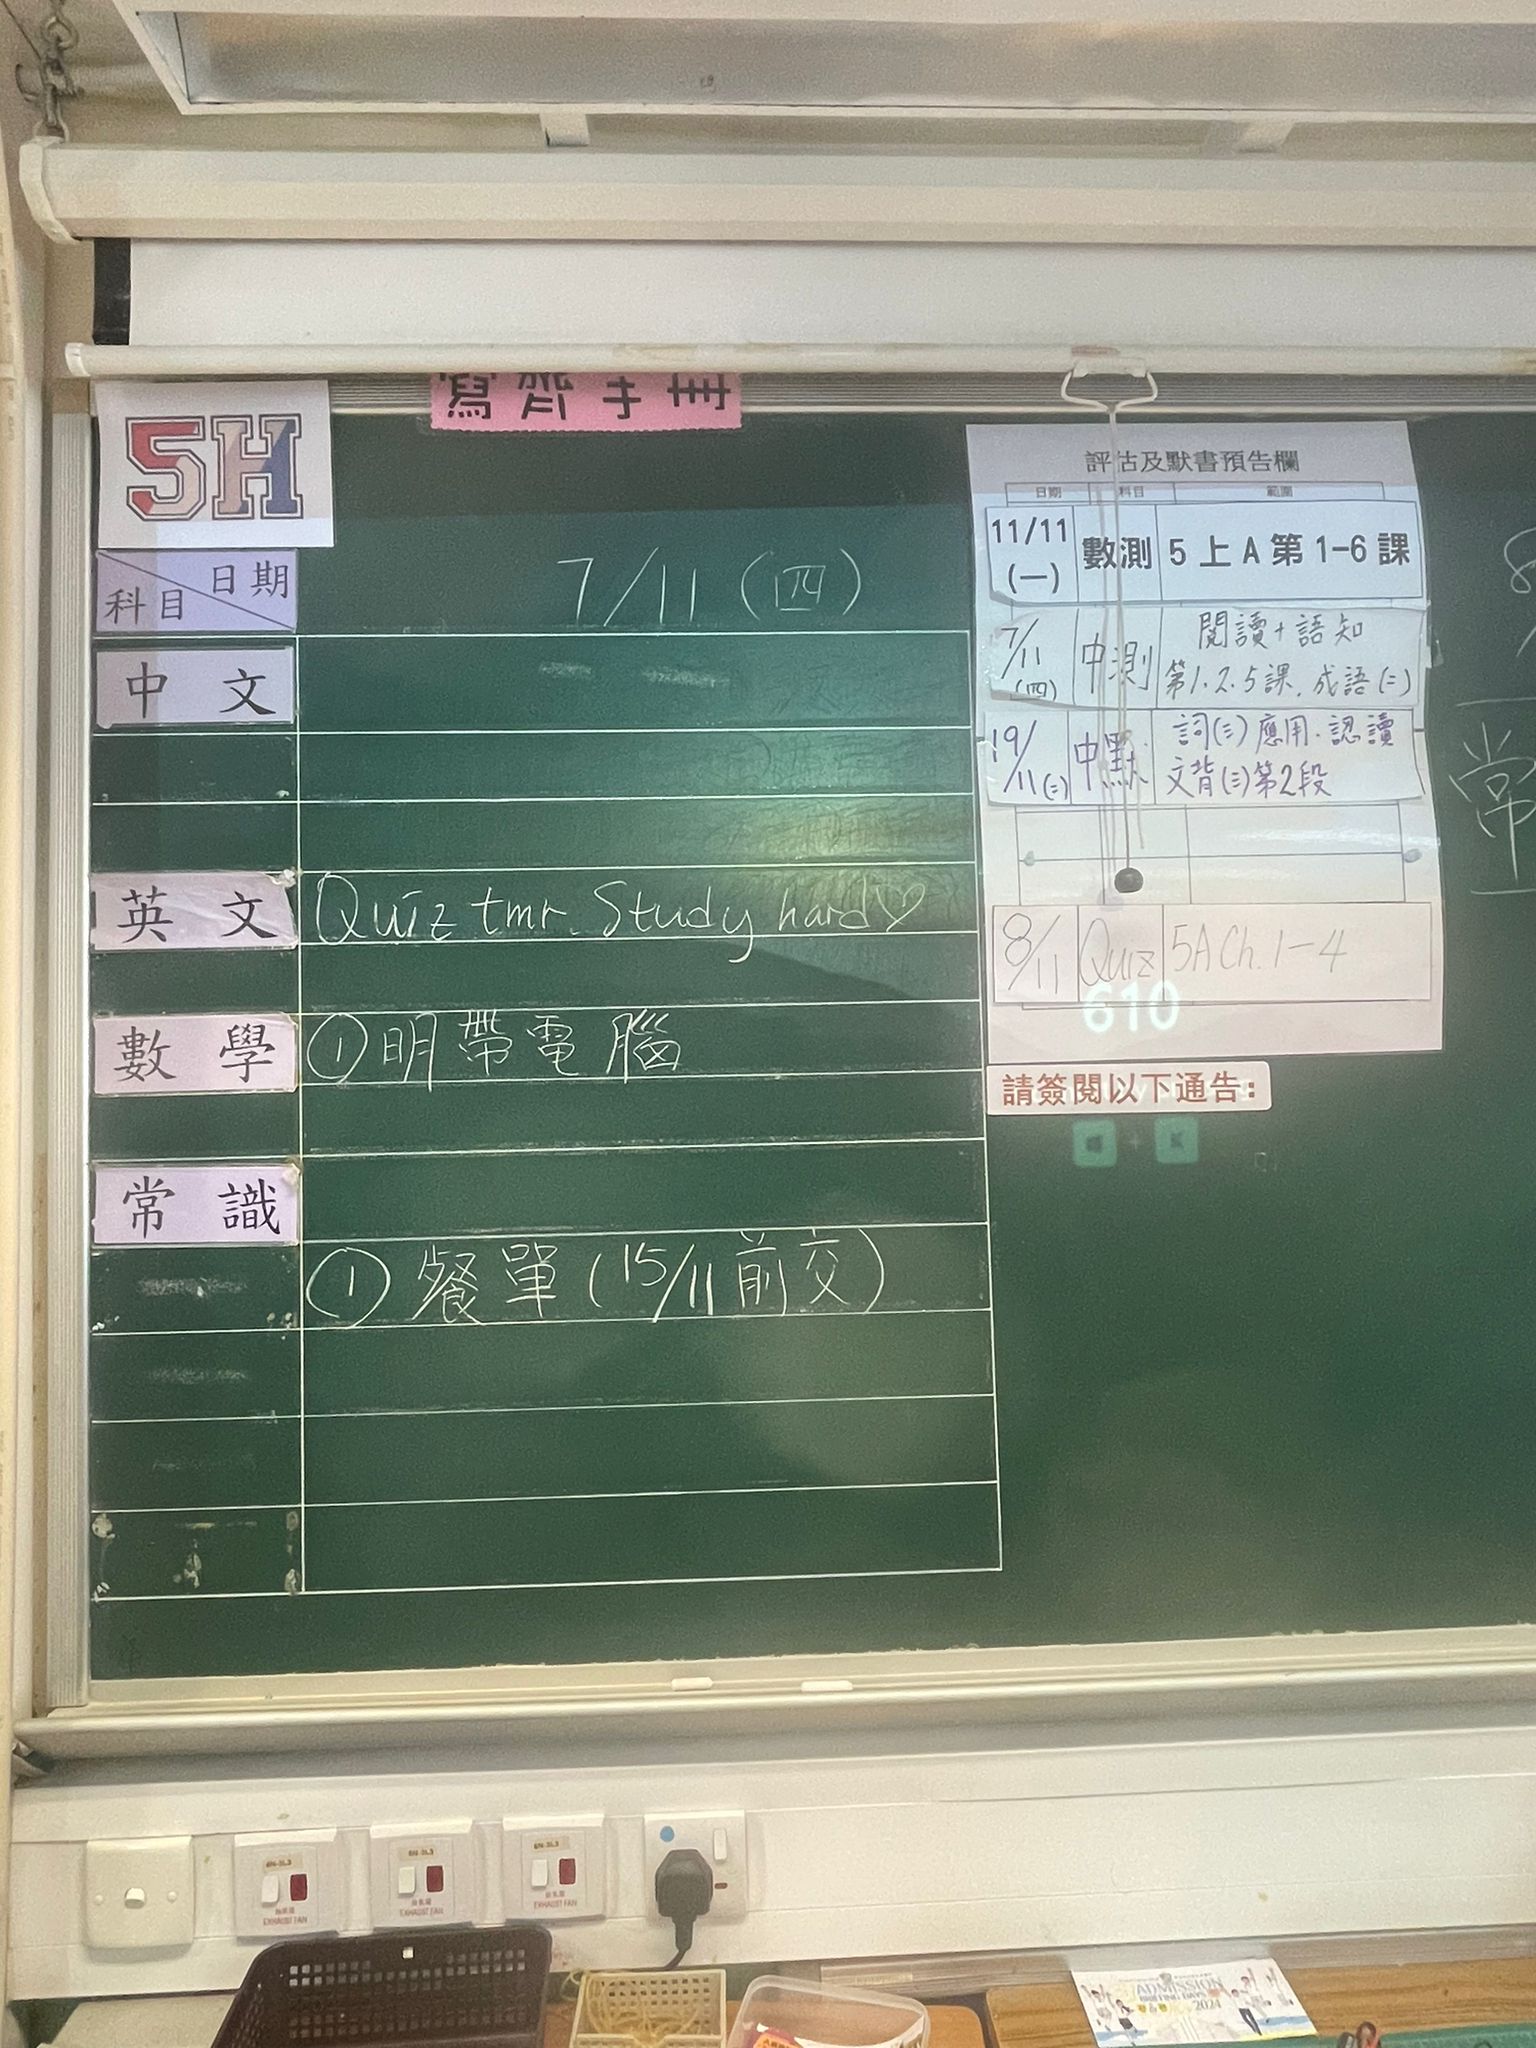 寫齊手冊
5H
日期
科目
7/11 (四)
中文
英文 Quiz tmr. Study hard♡
數學 ①明帶電腦
常識
① 餐單 (15/11前交)
評估及默書預告欄
日期 科目 範圍
11/11 (一) 數測 5上A第1-6課
7/11 (四) 中測 閱讀+語知
第1.2.5課.成語(二)
19/11(二) 中默 詞(三)應用.認讀
文背(三)第2段
8/11 Quiz 5A Ch.1-4
610
請簽閱以下通告:
8
常
EXHAUST FAN
EXHAUST FAN
EXHAUST FAN
ADMISSION
2024